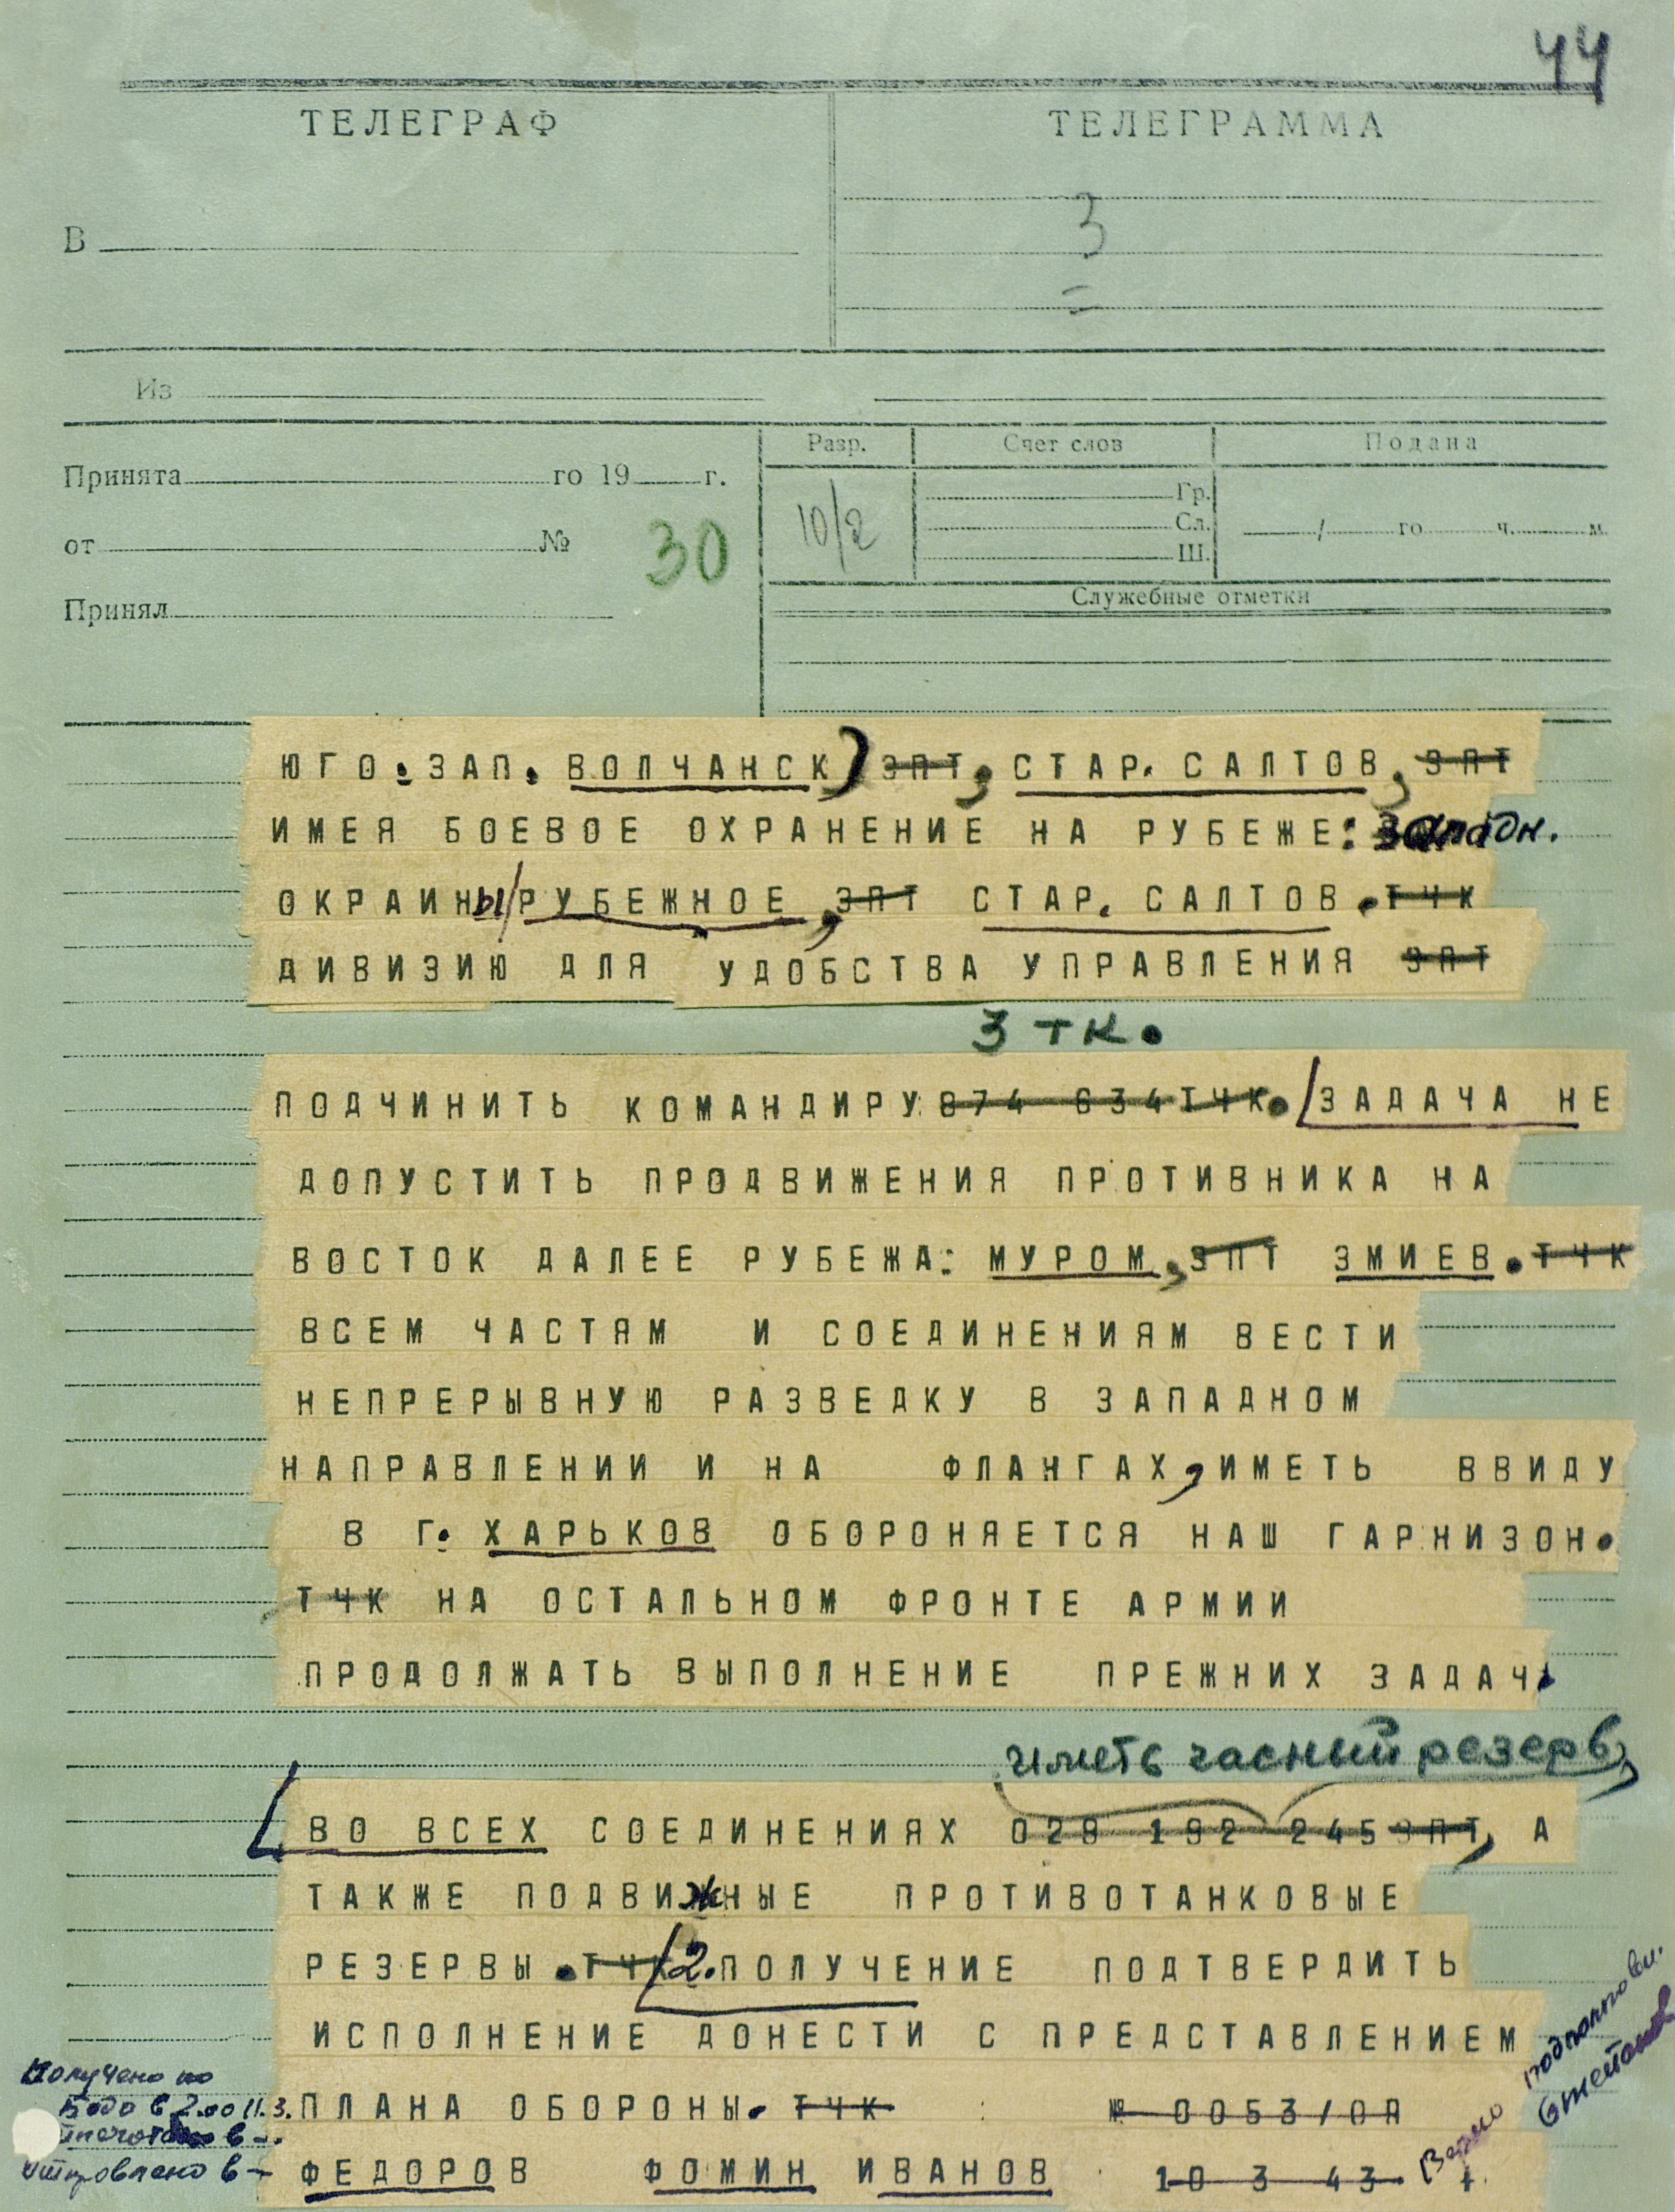 44
ТЕЛЕГРАФ
ТЕЛЕГРАММА
3
В
Из
Разр.
Счет слов
Подана
Принята го 19 г.
10/2
Гр.
Сл.
Ш.
/ го ч. м.
от № 30
Служебные отметки
Принял
ЮГО.ЗАП. ВОЛЧАНСК) ЗПТ, СТАР. САЛТОВ, ЗПТ
ИМЕЯ БОЕВОЕ ОХРАНЕНИЕ НА РУБЕЖЕ: западн.
ОКРАИНЫ РУБЕЖНОЕ, ЗПТ СТАР. САЛТОВ. ТЧК
ДИВИЗИЮ ДЛЯ УДОБСТВА УПРАВЛЕНИЯ ЗПТ
3 тк.
ПОДЧИНИТЬ КОМАНДИРУ 874 634 ТЧК. ЗАДАЧА НЕ
ДОПУСТИТЬ ПРОДВИЖЕНИЯ ПРОТИВНИКА НА
ВОСТОК ДАЛЕЕ РУБЕЖА: МУРОМ, ЗПТ ЗМИЕВ. ТЧК
ВСЕМ ЧАСТЯМ И СОЕДИНЕНИЯМ ВЕСТИ
НЕПРЕРЫВНУЮ РАЗВЕДКУ В ЗАПАДНОМ
НАПРАВЛЕНИИ И НА ФЛАНГАХ, ИМЕТЬ ВВИДУ
В Г. ХАРЬКОВ ОБОРОНЯЕТСЯ НАШ ГАРНИЗОН.
ТЧК НА ОСТАЛЬНОМ ФРОНТЕ АРМИИ
ПРОДОЛЖАТЬ ВЫПОЛНЕНИЕ ПРЕЖНИХ ЗАДАЧ.
иметь часный резерв,
ВО ВСЕХ СОЕДИНЕНИЯХ 029 192 245 ЗПТ, А
ТАКЖЕ ПОДВИЖНЫЕ ПРОТИВОТАНКОВЫЕ
РЕЗЕРВЫ. ТЧК 2. ПОЛУЧЕНИЕ ПОДТВЕРДИТЬ
ИСПОЛНЕНИЕ ДОНЕСТИ С ПРЕДСТАВЛЕНИЕМ
ПЛАНА ОБОРОНЫ. ТЧК № 0053/ОП
ФЕДОРОВ ФОМИН ИВАНОВ 10 3 43.
Получено по
Бодо в 2.00 11.3.
в -.
Отправлено в -
Верно
подполковн.